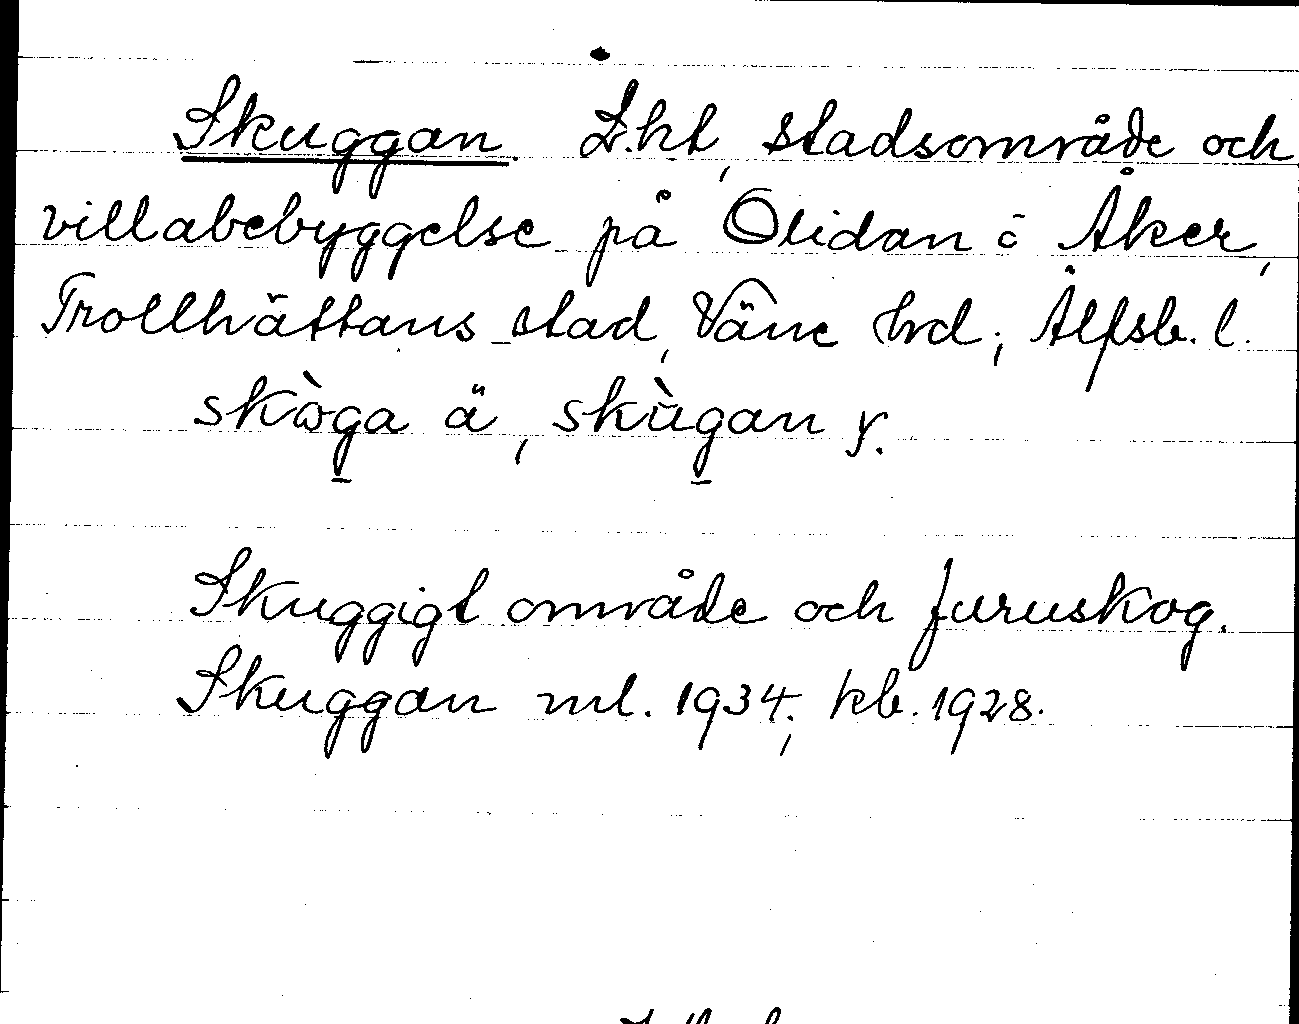 Skuggan L.ht, stadsområde och
villabebyggelse på Olidan i Åker,
Trollhättans stad, Väne hrd; Älfsb. l.
skòga ä, skùgan y.
Skuggigt område och furuskog.
Skuggan ml. 1934; kb. 1928.